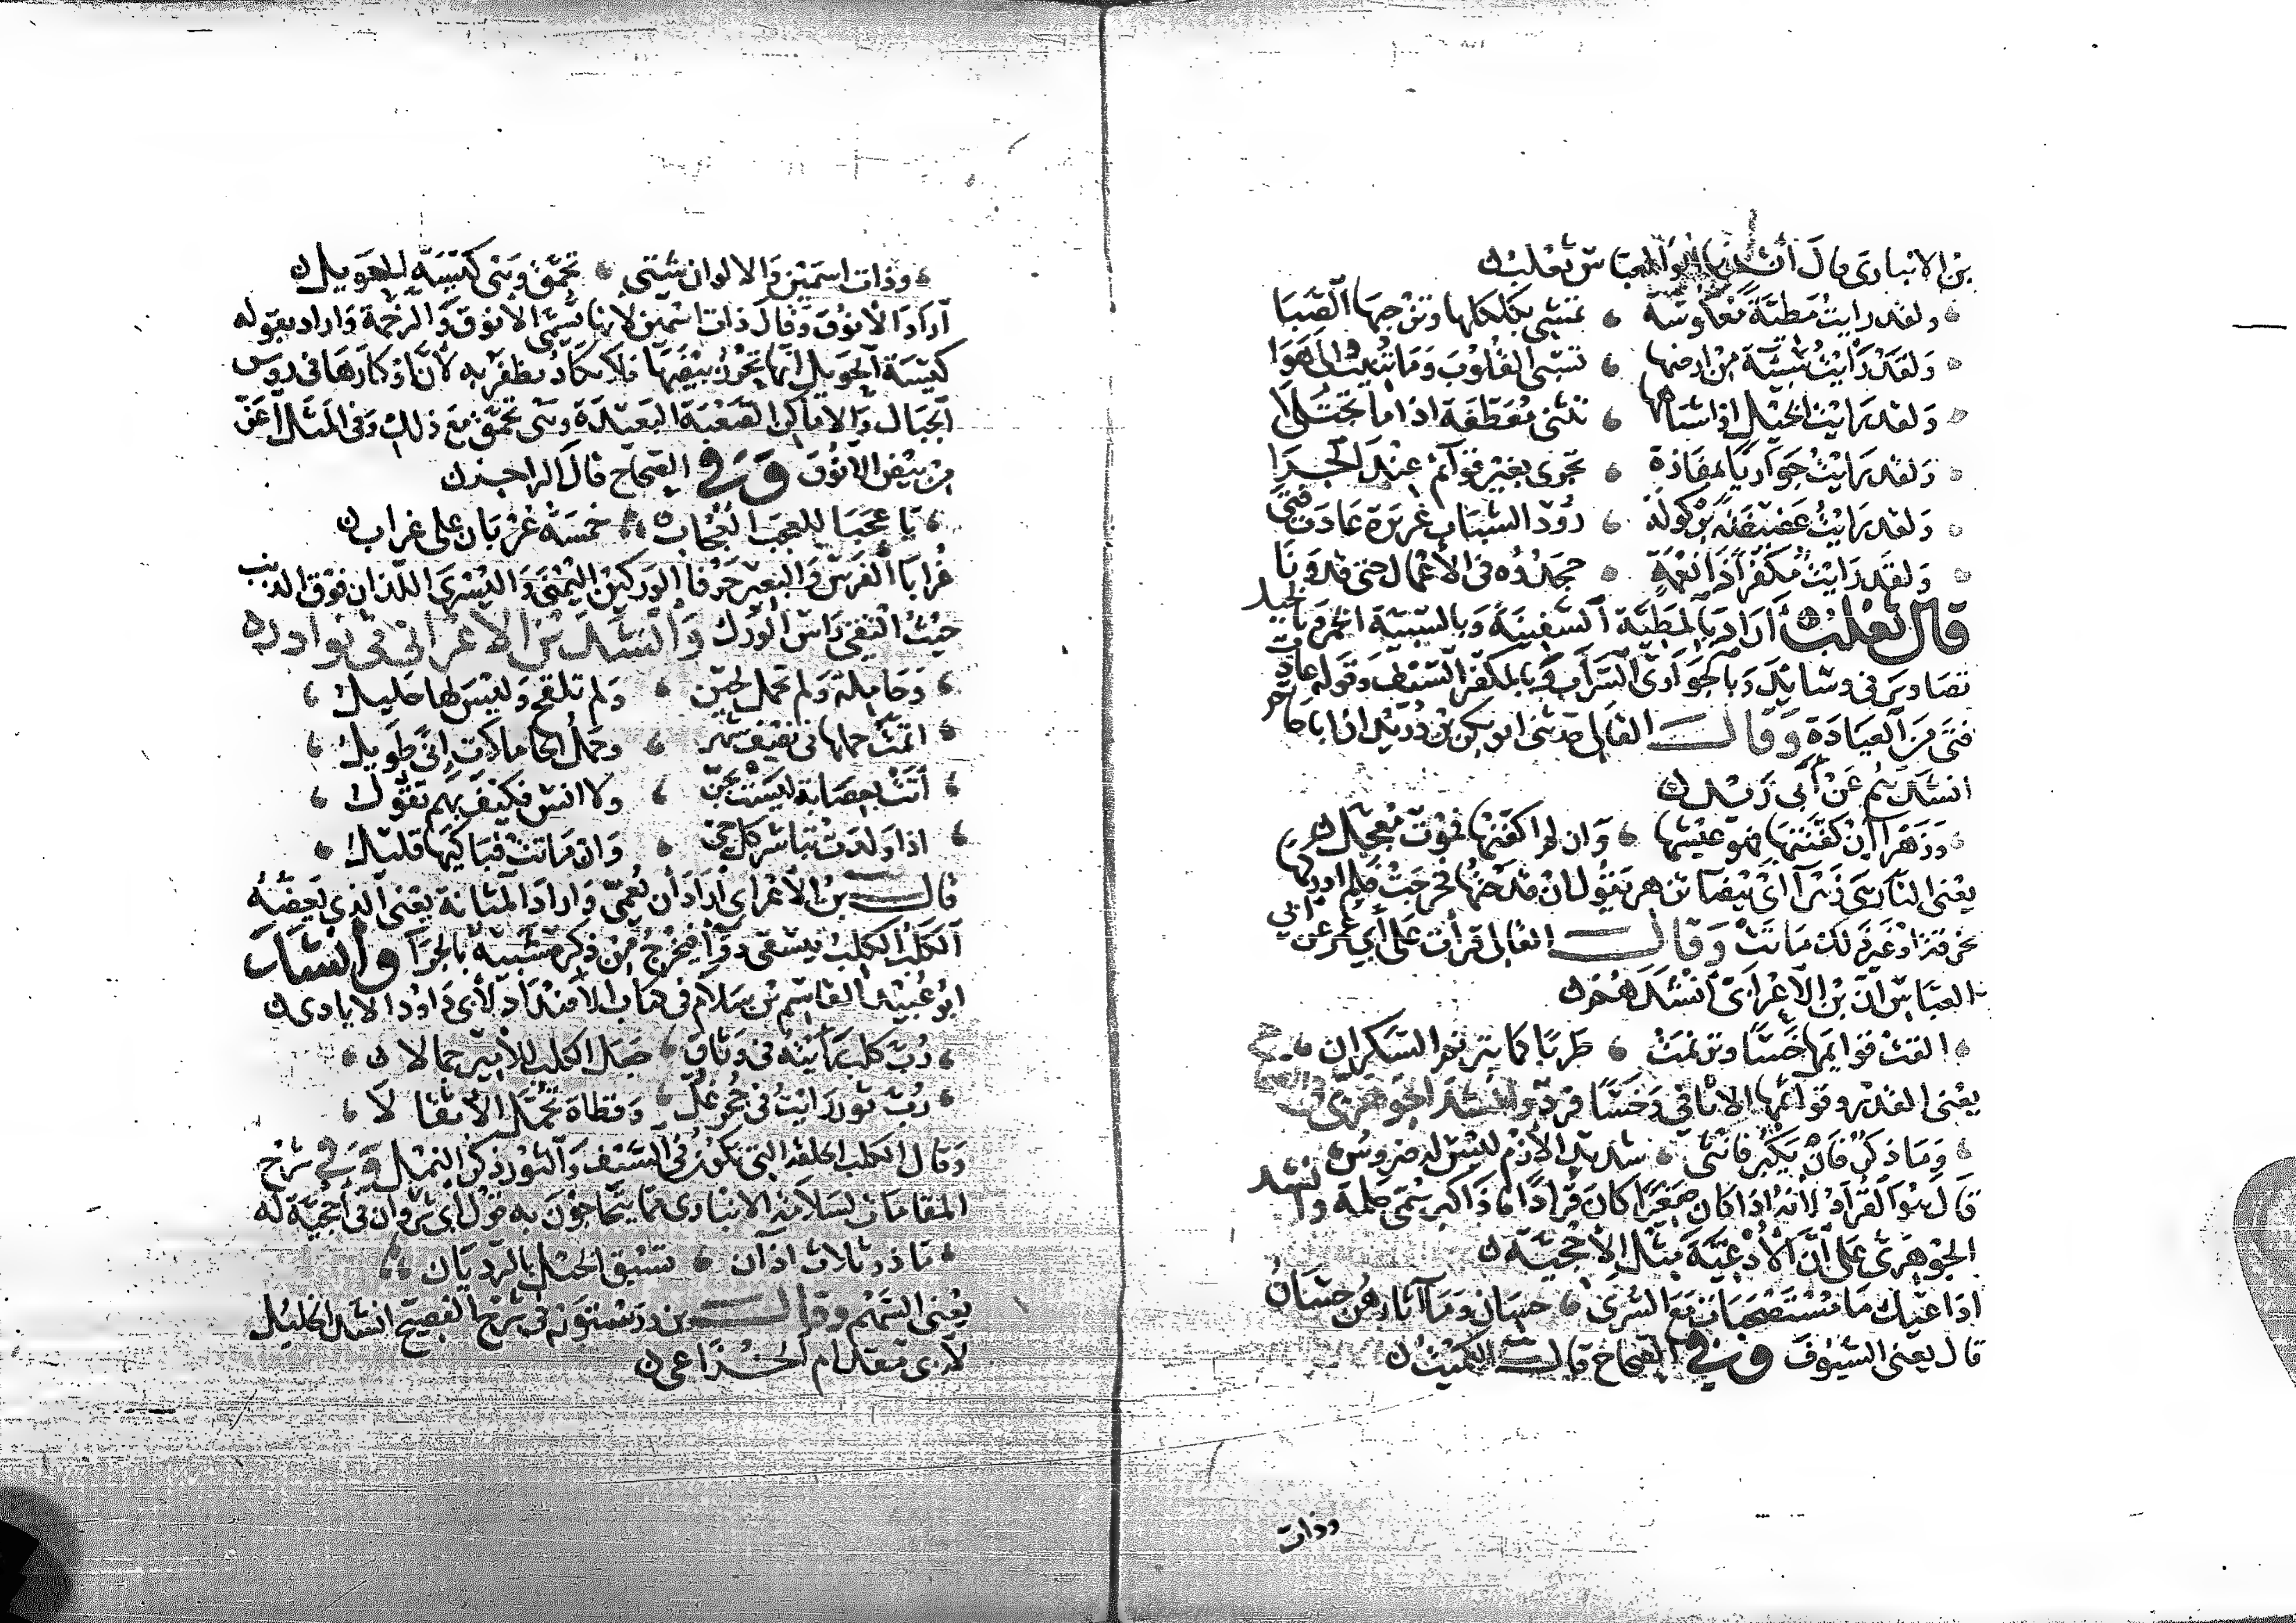 بن الانبارى قال أنشدنا أبو العباس ثعلب
ولقد رايت مطية معكوسة تمشى بكلكلها وتزجيها الصبا
ولقد رأيت سبية من ارضها تسبى القلوب وما تنيب الى هوا
ولقد رايت الخيل او اشباهها تثنى معطفة اذا ما تجتلا
ولقد رايت جواريا بمفازة تجرى بغير قوائم عند الجرا
ولقد رايت غضيضة هركولة رؤد الشباب غريرة عادت فتى
ولقد رايت مكفرا ذا نعمة جهدوه فى الاعمال حتى قد ونا
قال ثعلب أراد بالمطية السفينة وبالسبية الخمر وبالخيل
تصاوير فى وسائد وبالجوارى السراب وبالمكفر السيف وقوله عادت
فتى من العيادة وقال القالى حدثنى ابو بكر بن دريد ان ابا حاتم
انشدهم عن أبى زيد
وزهرا ان كفنتها فهو عيشها وان لم اكفنها فموت معجل
يعنى النار هى زهرا اى بيضا تزهر يقول ان قدحتها فخرجت فلم ادركها
بخرقة او غير ذلك ماتت وقال القالى قرأت على أبى عمر عن أبى
العباس ان بن الأعرابى أنشدهم
القت قوائمها خسا وترنمت طربا كما يترنم السكران
يعنى القدر وقوائمها الاثافى وخسا فرد وانشد الجوهرى فى الصحاح
وما ذكر فان يكبر فانثى شديد الأزم ليس له ضروس
قال هو القراد لأنه اذا كان صغيرا كان قرادا فاذا كبر سمى حلمة وانشد
الجوهرى على أن الأدعية مثل الأحجية
اداعيك ما مستصحبات مع السرى حسان وما آثارهن حسان
قال يعنى السيوف وفى الصحاح قال الكميت
وذات
وذات اسمين والالوان شتى تحمق وهى كيسة الحويل
أراد الأنوق وقال ذات اسمين لانها تسمى الانوق والرخمة واراد بقوله
كيسة الحويل انها تحرز بيضها فلا يكاد يظفر به لأن اوكارها فى روس
الجبال والاماكن الصعبة البعيدة وهى تحمق مع ذلك وفى المثل أعز
من بيض الانوق وفى الصحاح قال الراجز
يا عجبا للعجب العجاب خمسة غربان على غراب
غرابا الفرس والبعير حرفا الوركين اليمنى واليسرى اللذان فوق الذنب
حيث التقى راس الورك وانشد بن الاعرابى فى نوادره
وحاملة ولم تحمل لحين ولم تلقح وليس لها حليل
اتمت حملها فى نصف شهر وحمل الحاملات إنى طويل
أتت بعصابة ليست بجن ولا انس فكيف بهم تقول
اذا ولدت تباشر كل حى وان ماتت فباكيها قليل
قال بن الأعرابى أراد أن يعمى واراد المثانة يعنى الذى يعضه
الكلب الكلب فيسقى دوا فيخرج من ذكره شبيه بالجرا وانشد
ابو عبيد القاسم بن سلام فى كتاب الاضداد لأبى داود الايادى
رب كلب رأيته فى وثاق جعل الكلب للأمير جمالا
رب ثور رايت فى جحر نمل وقطاة تحمل الأثقالا
وقال الكلب الحلقة التى تكون فى السيف والثور ذكر النمل وفى شرح
المقامات لسلامة الانبارى مما يتحاجون به قول أبى ثروان فى أحجية له
ما ذو ثلاث آذان تسبق الخيل بالرديان
يعنى السهم وقال بن درستويه فى شرح الفصيح انشد الخليل
لأبى مقدام الخزاعى